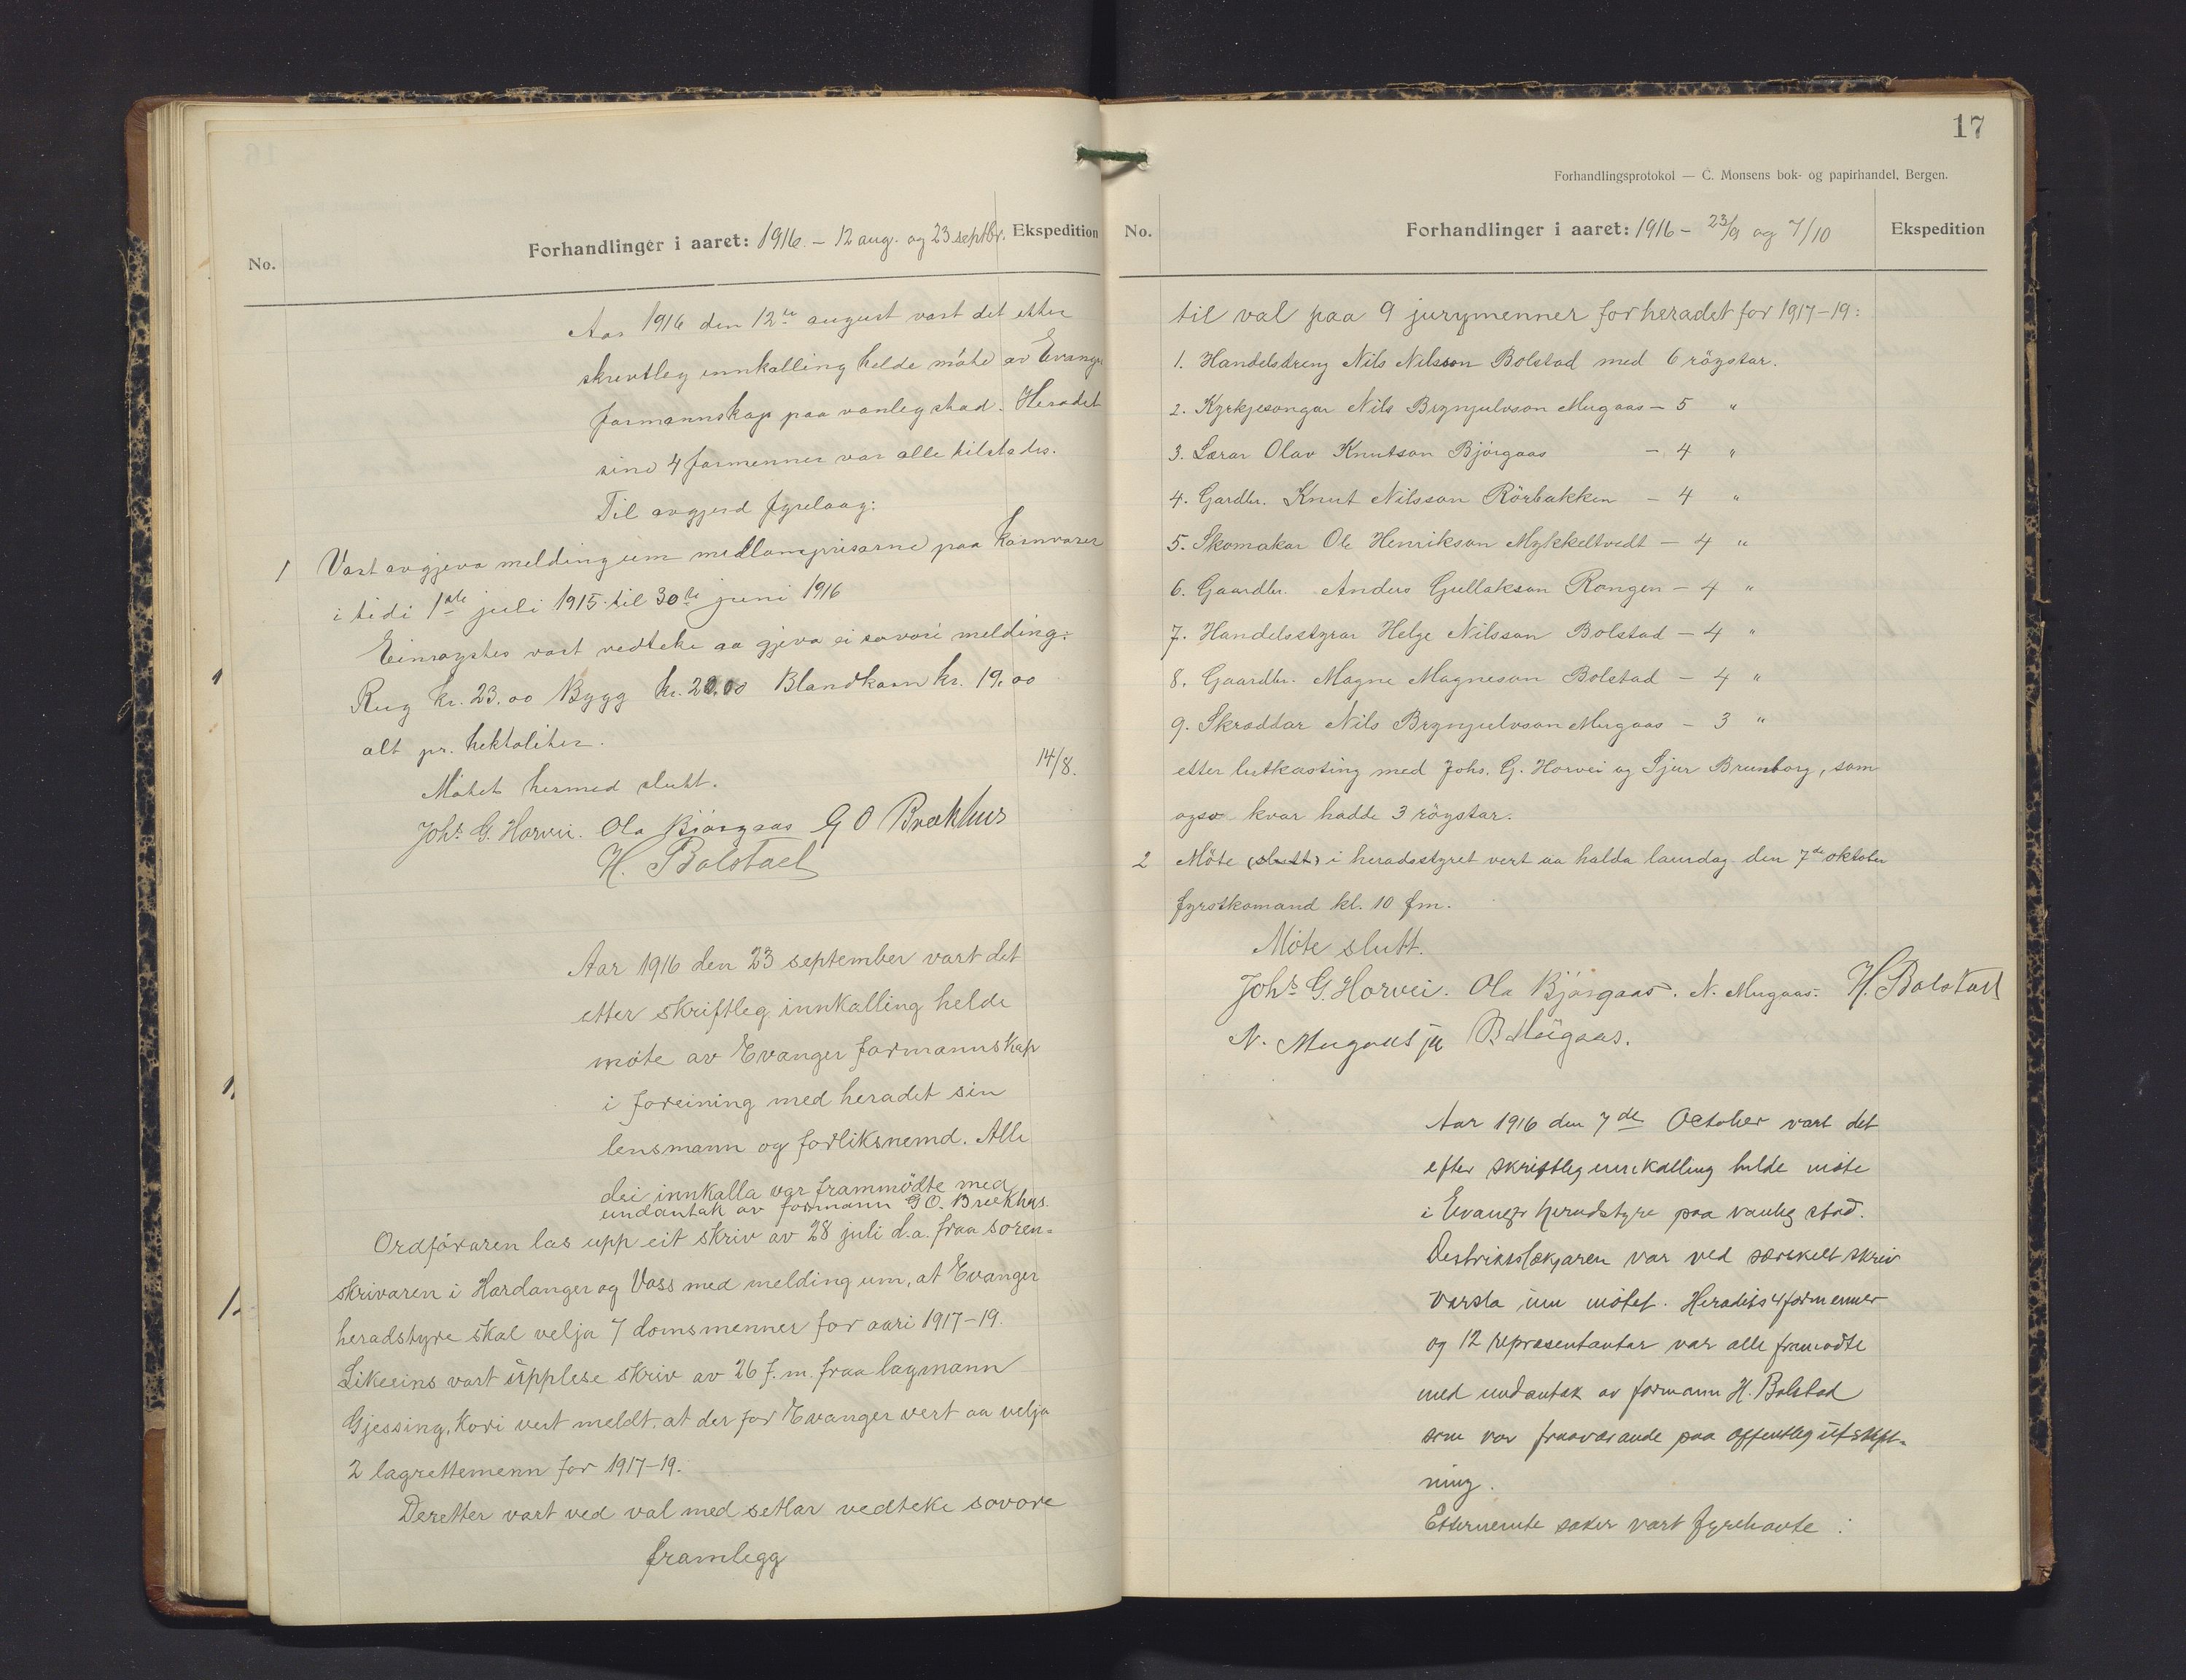 No.
Forhandlinger i aaret: 1916. – 12 aug. og 23 septbr.
Ekspedition
Aar 1916 den 12te august vart det etter
skrivtleg innkalling helde möte av Evanger
formannskap paa vanleg stad. Heradet
sine 4 formenner var alle tilstades.
Til avgjerd fyrelaag:
1 Vart avgjeva melding um medlomsprisarne paa kornvarer
i tidi 1ste juli 1915 til 30te juni 1916
Einröystes vart vedteke aa gjeva ei sovori melding:
Rug kr. 23,00 Bygg kr. 20,00 Blandkorn kr. 19,00
alt pr. hektoliter.
14/8.
Mötet hermed slutt.
Johs G. Horvei. Ola Bjørgaas G O Brækhus
H. Bolstad
Aar 1916 den 23 september vart det
etter skriftleg innkalling helde
möte av Evanger formannskap
i foreining med heradet sin
lensmann og forliksnemd. Alle
dei innkalla var frammödte med
undantak av formann G O. Brækhus.
Ordföraren las upp eit skriv av 28 juli d.a. fraa soren-
skrivaren i Hardanger og Voss med melding um, at Evanger
heradstyre skal velja 7 domsmenner for aari 1917–19.
Likeeins vart upplese skriv av 26 f. m. fraa lagmann
Gjessing, kori vert meldt, at der for Evanger vert aa velja
2 lagrettemenn for 1917–19.
Deretter vart ved val med setlar vedteke sovore
framlegg
17
Forhandlingsprotokol — C. Monsens bok- og papirhandel, Bergen.
No.
Forhandlinger i aaret: 1916 – 23/9 og 7/10
Ekspedition
til val paa 9 jurymenner for heradet for 1917–19:
1. Handelsdreng Nils Nilsson Bolstad med 6 röystar.
2. Kyrkjesongar Nils Brynjulvson Mugaas – 5 "
3. Lærar Olav Knutson Bjørgaas – 4 "
4. Gardbr. Knut Nilsson Rörbakken – 4 "
5. Skomakar Ole Henrikson Mykkeltvedt – 4 "
6. Gaardbr. Anders Gullakson Rongen – 4 "
7. Handelsstyrar Helge Nilsson Bolstad – 4 "
8. Gaardbr. Magne Magneson Bolstad – 4 "
9. Skræddar Nils Brynjulvson Mugaas – 3 "
etter lutkasting med Johs. G. Horvei og Sjur Brunborg, som
ogso kvar hadde 3 röystar.
2 Möte (slutt) i heradsstyret vert aa halda laurdag den 7de oktober
fyrstkomand kl. 10 fm.
Möte slutt.
Johs G. Horvei. Ola Bjørgaas. N. Mugaas. H. Bolstad
N. Mugaas jr B. Mügaas.
Aar 1916 den 7de October vart det
efter skriftleg innkalling helde möte
i Evanger heradstyre paa vanleg stad.
Destriktslækjaren var ved særskelt skriv
varsla um mötet. Heradets 4 formenner
og 12 repræsentantar var alle framödte
med undantak av formann H. Bolstad
som var fraaværande paa offentleg utskift-
ning.
Etternemte saker vart fyrehavte :